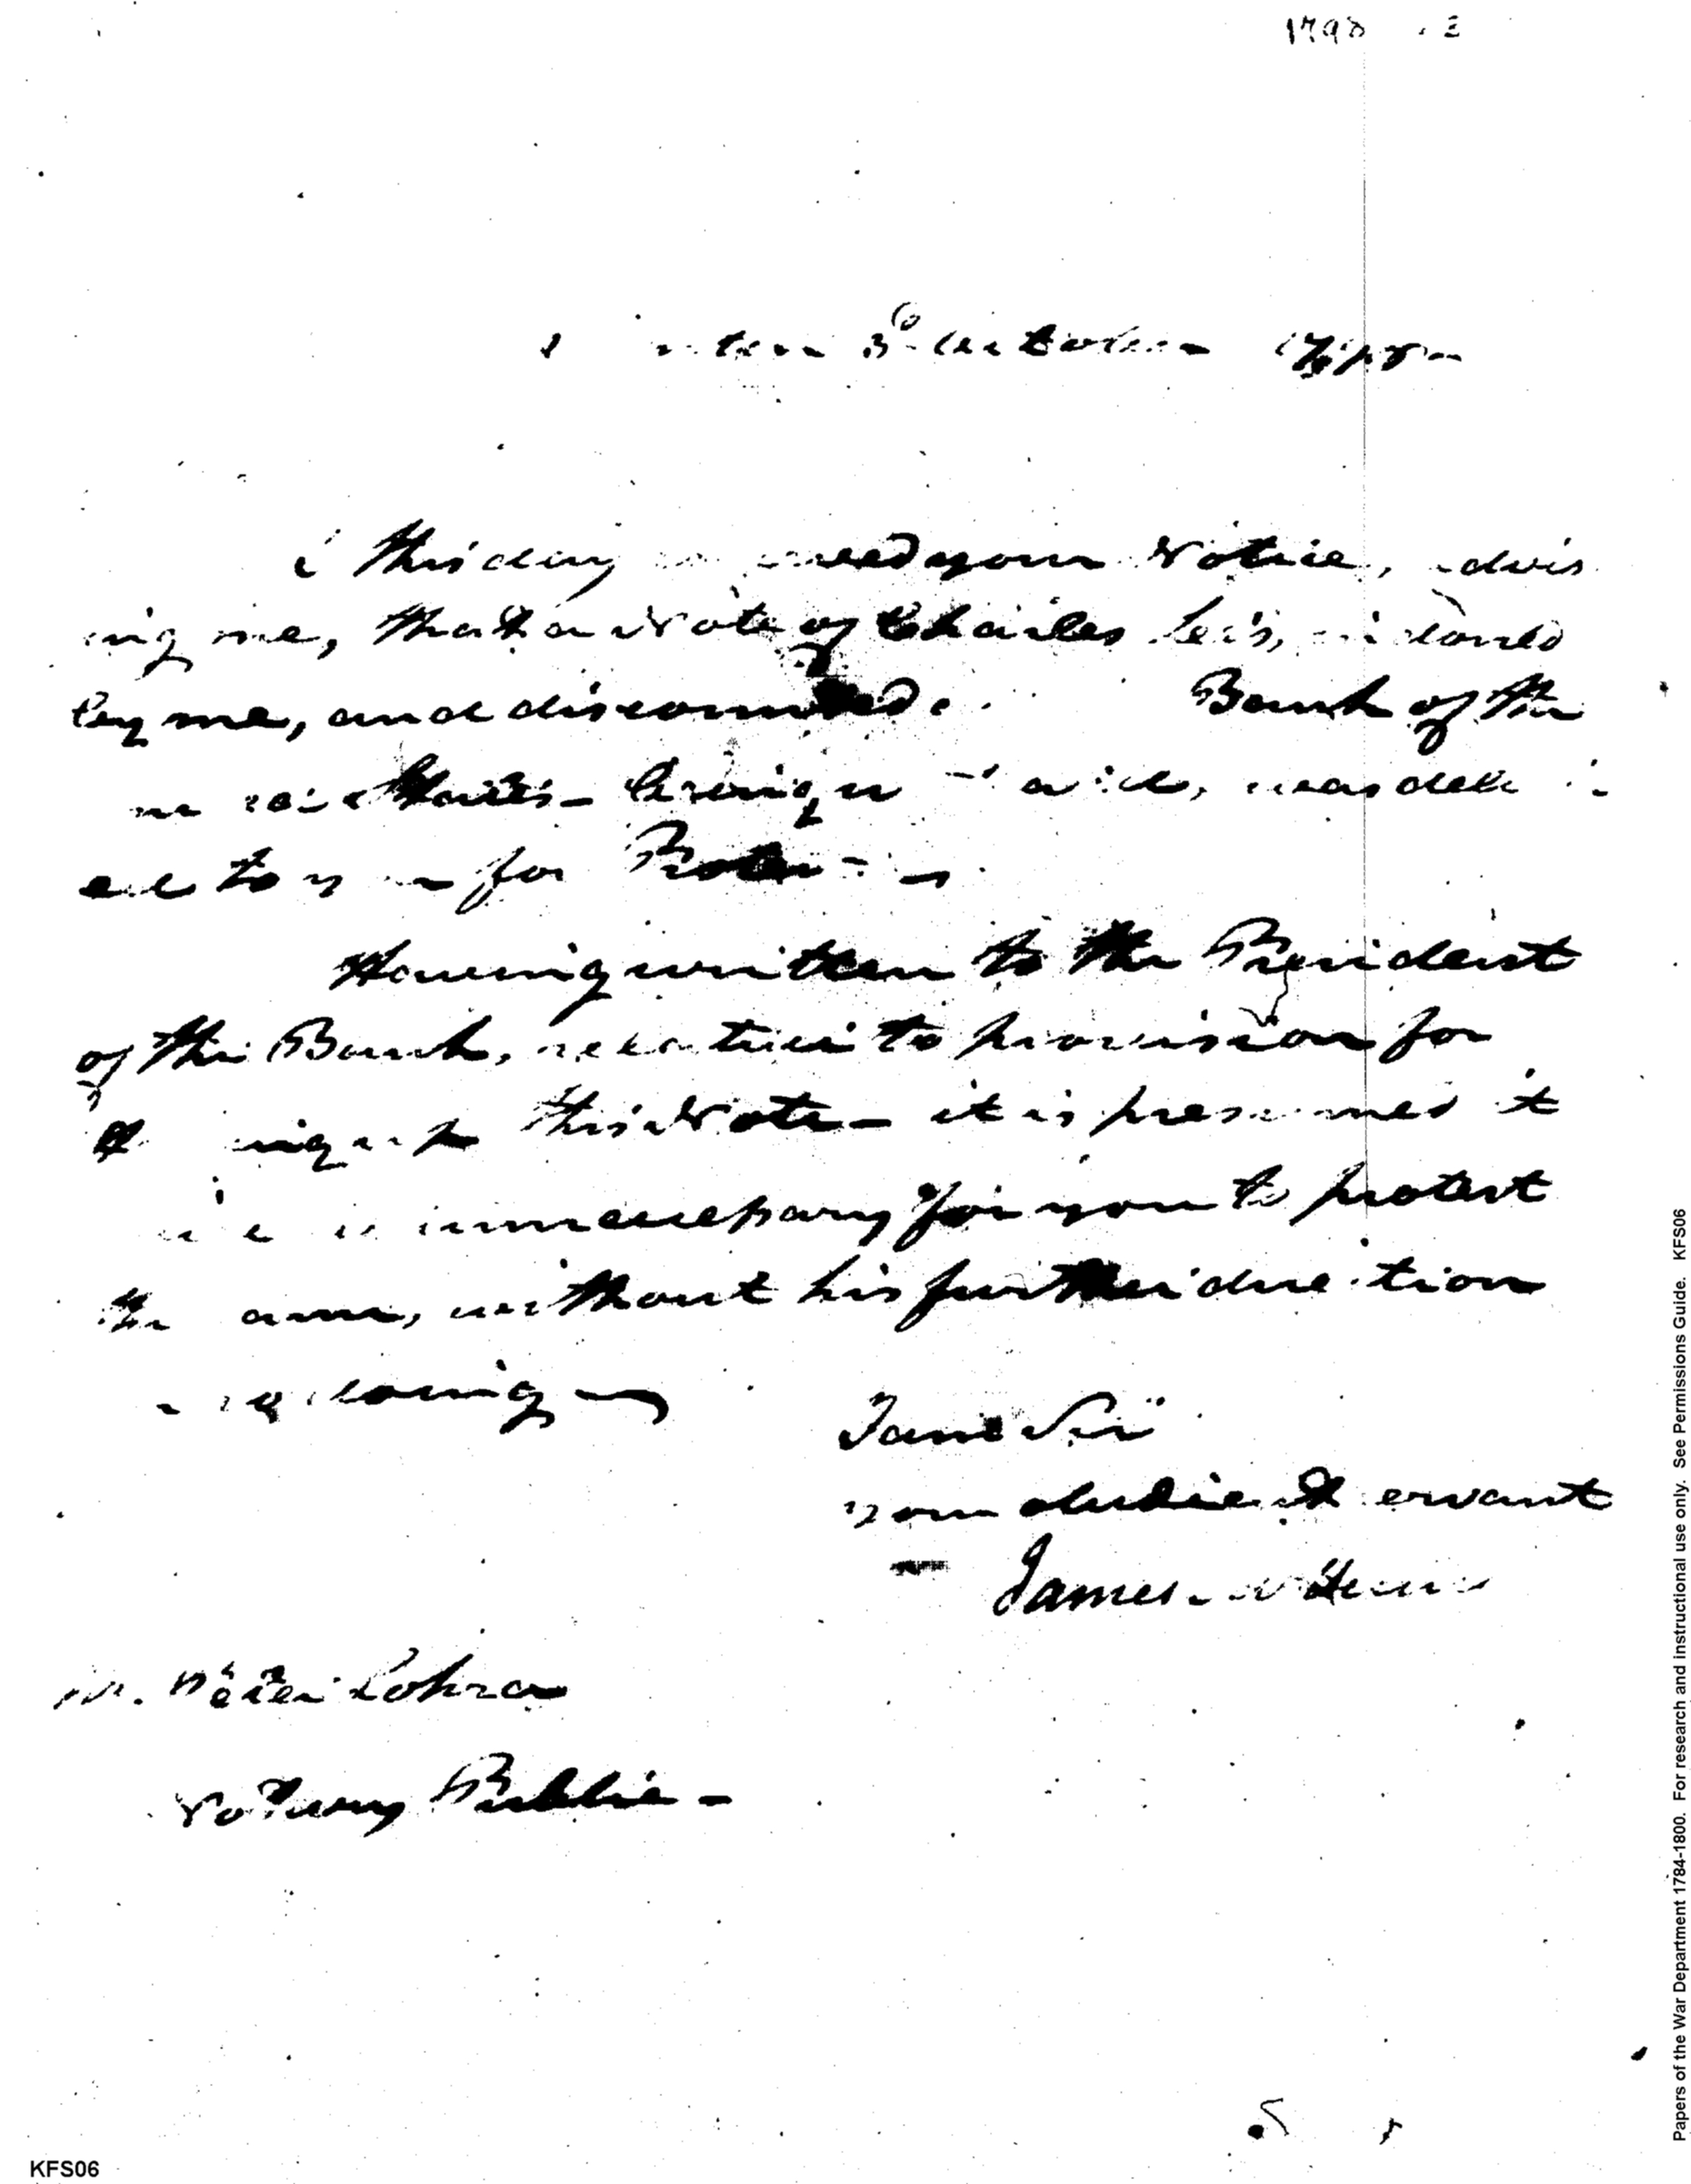 1798
October 1798
I this day received your Notice, advis
ing me, that a Note of Charles Lee's, indorsed
by me, and discounted Bank of the
States - being unpaid, was deliver
ed to you for Protest
Having written to the President
of the Bank, relative to provision for
taking up this Note - it is presumed it
will be unnecessary for you to protest
the same, without his further direction
so doing
I am Sir
your obedient servant
James McHenry
Mr. Peter Lohra
Notary Public -
Papers of the War Department 1784-1800. For research and instructional use only. See Permissions Guide. KFS06
KFS06